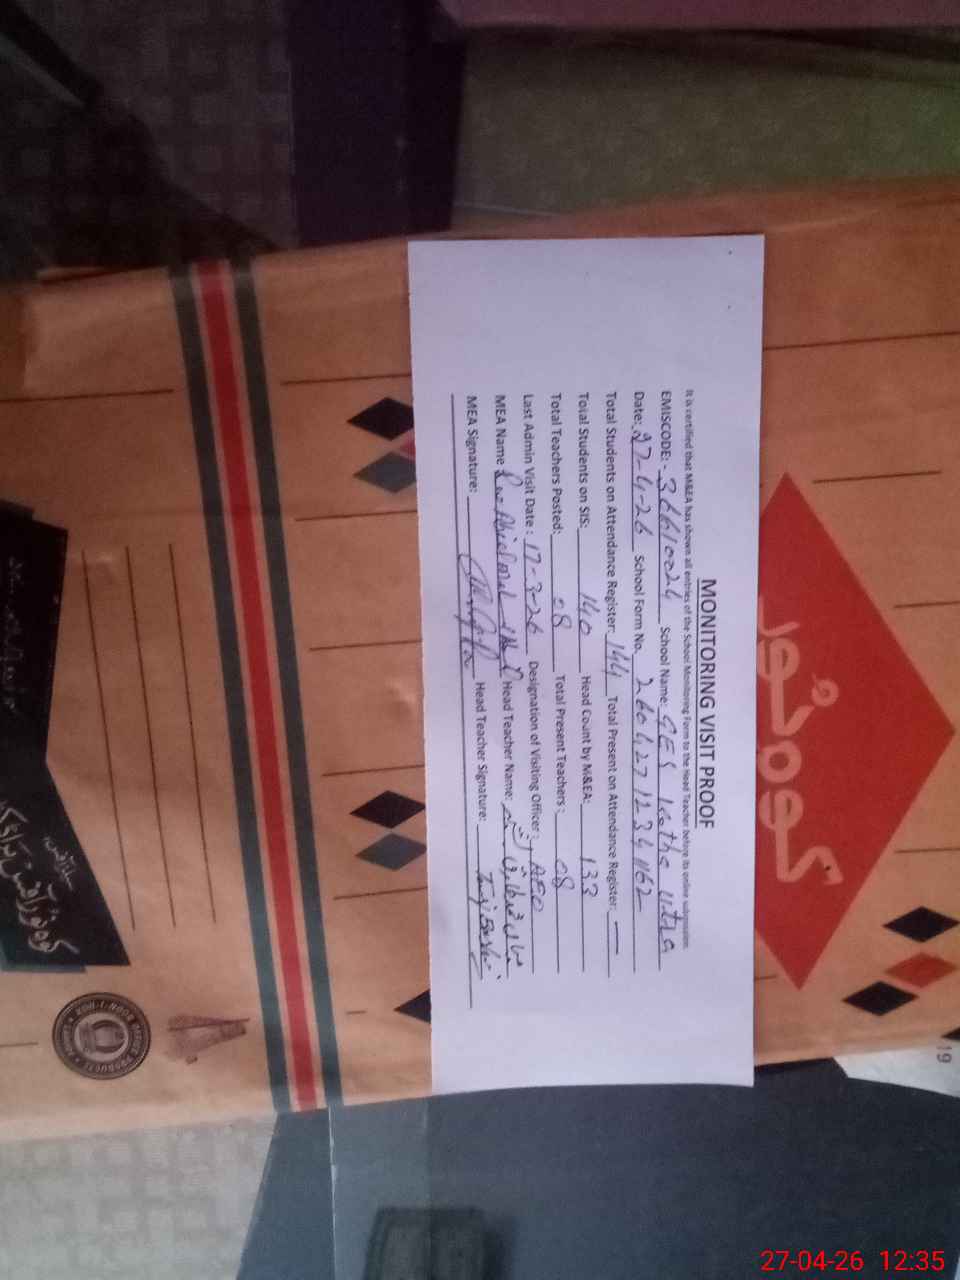 MONITORING VISIT PROOF
It is certified that M&EA has shown all entries of the School Monitoring Form to the Head Teacher before its online submission.
EMISCODE: - 36610024 School Name: GES Kotha
Date: 27-4-26 School Form No. 260427123
Total Students on Attendance Register: 144 Total Present on Attendance Register: —
Total Students on SIS: 140 Head Count by M&EA: 133
Total Teachers Posted: 08 Total Present Teachers: 08
Last Admin Visit Date: 17-3-26 Designation of Visiting Officer: AEO
MEA Name Head Teacher Name:
MEA Signature: Head Teacher Signature:
کوہ نور
19
27-04-26 12:35